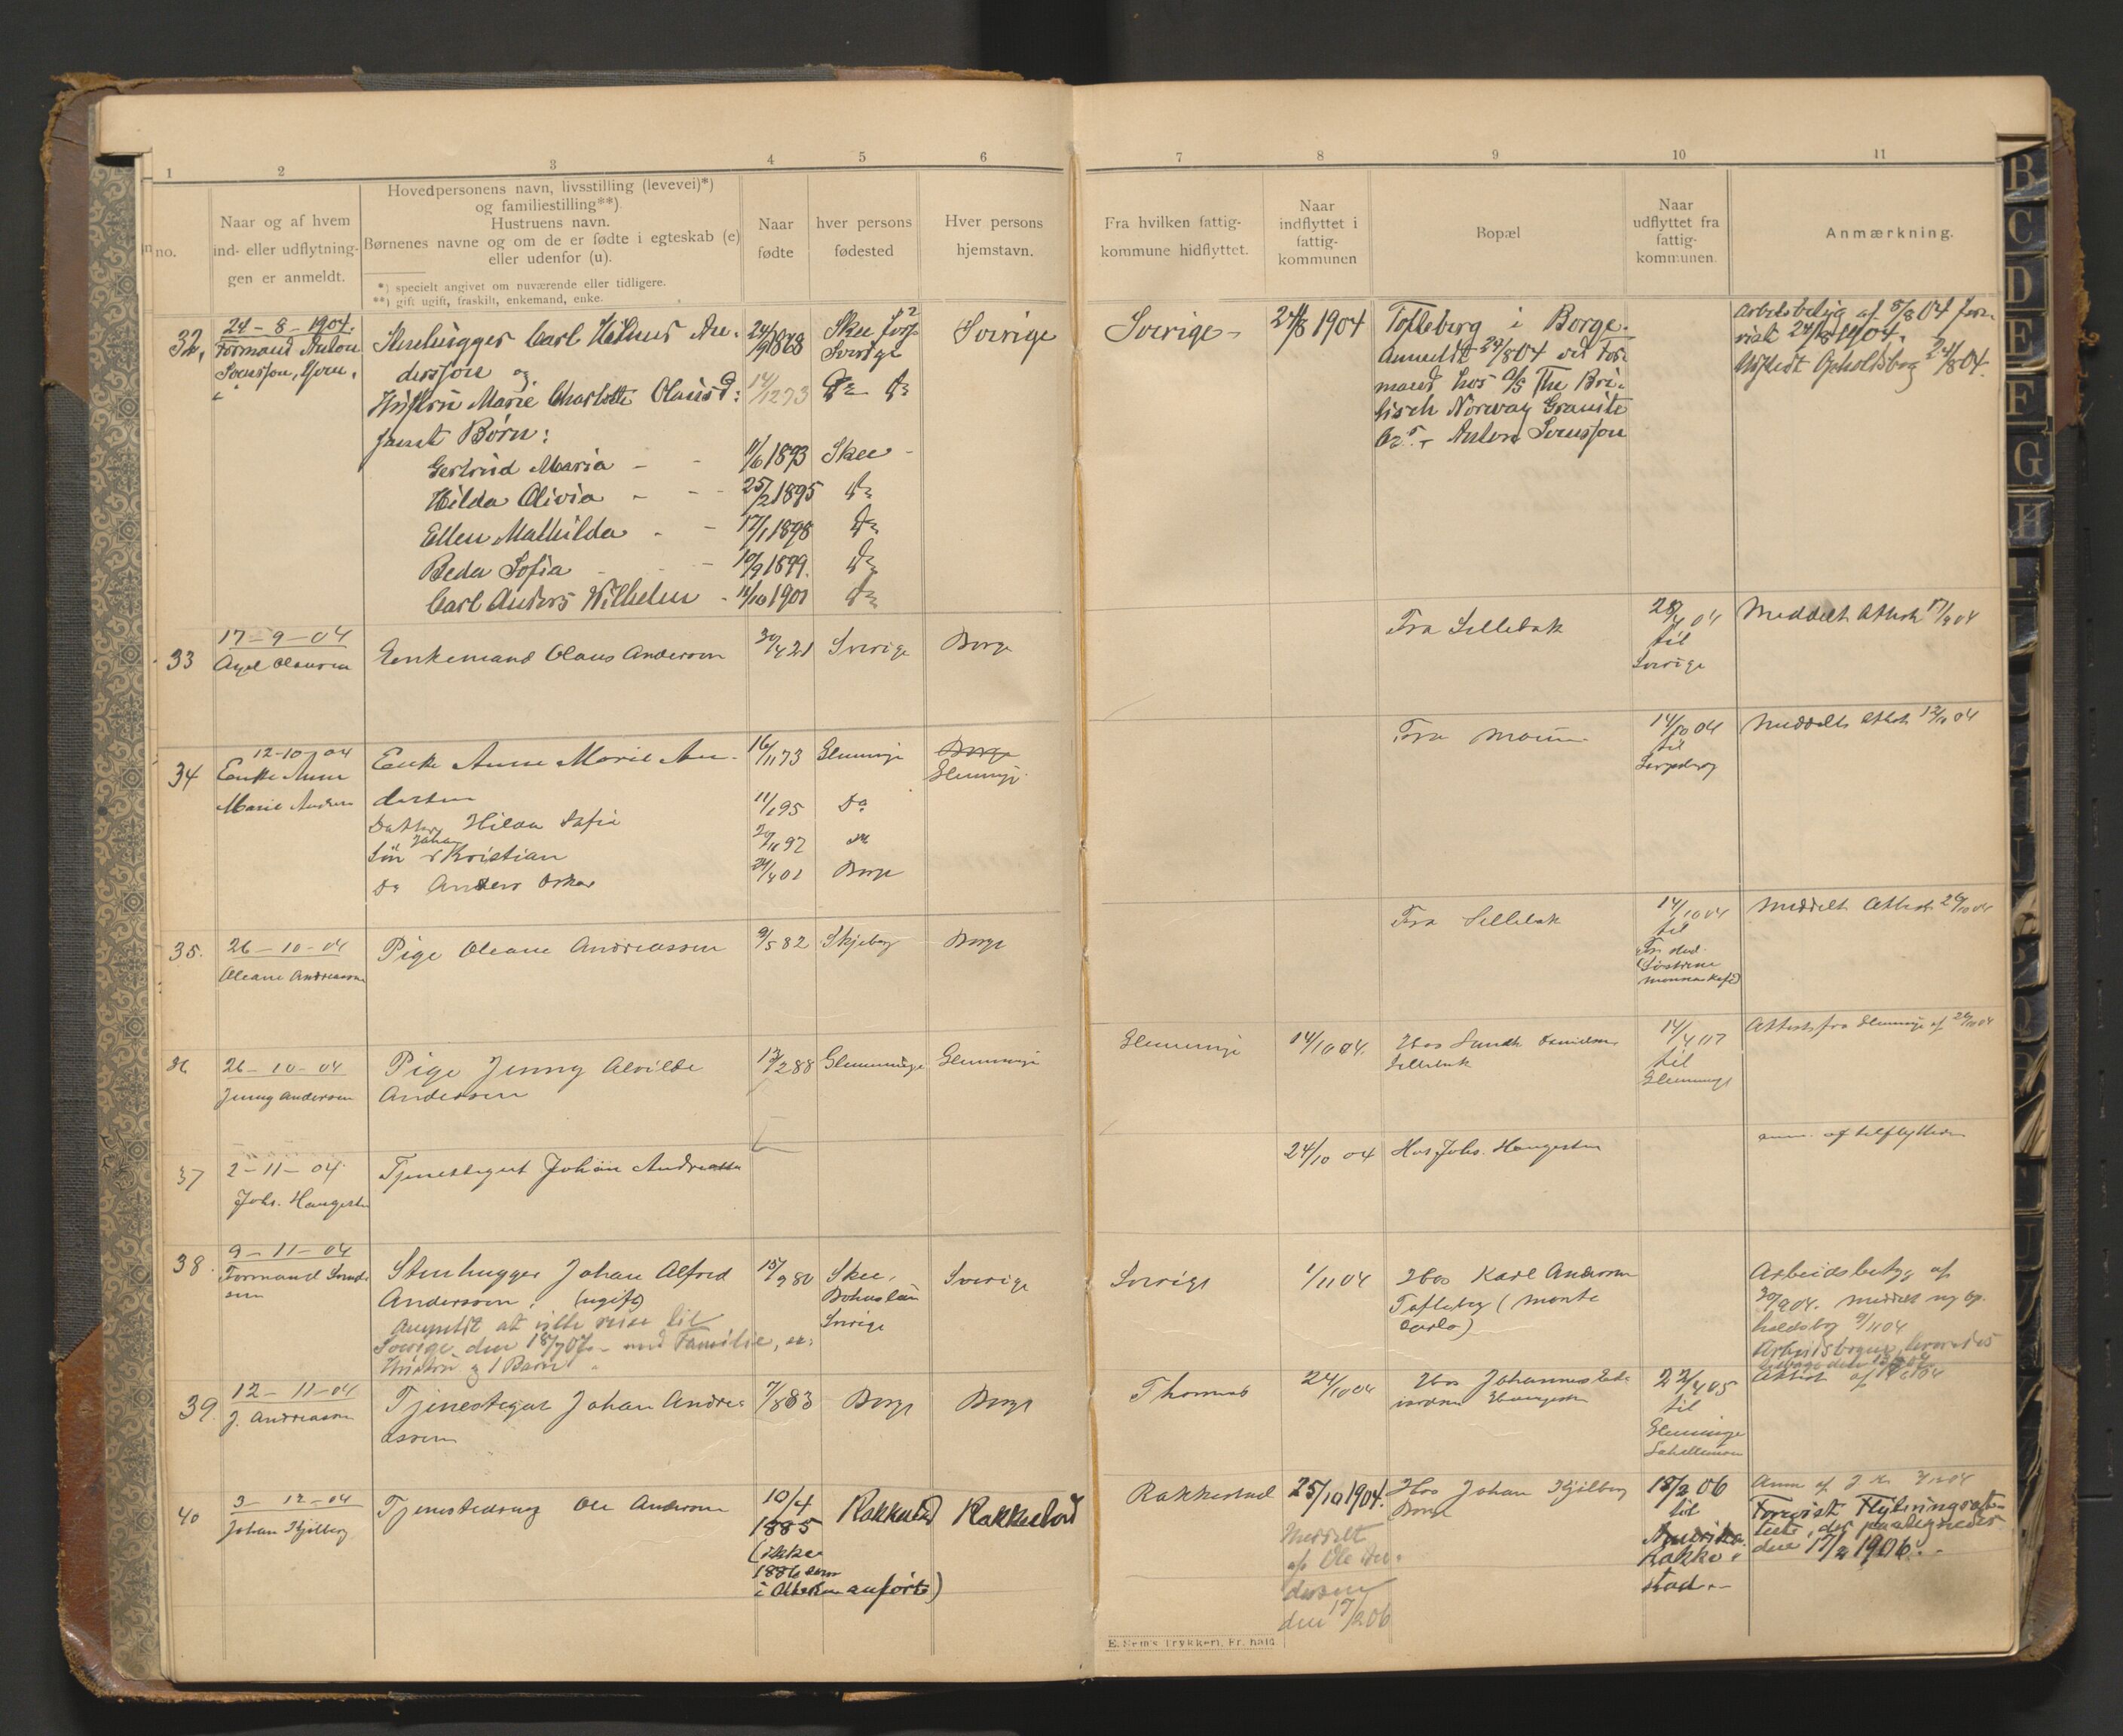 1
2
3
4
5
6
7
8
9
10
11
no.
Naar og af hvem
ind- eller udflytnin-
gen er anmeldt.
Hovedpersonens navn, livsstilling (levevei)*)
og familiestilling**)
Hustruens navn.
Børnenes navne og om de er fødte i egteskab (e)
eller udenfor (u).
*) specielt angivet om nuværende eller tidligere.
**) gift ugift, fraskilt, enkemand, enke.
Naar
fødte
hver persons
fødested
Hver persons
hjemstavn.
Fra hvilken fattig-
kommune hidflyttet.
Naar
indflyttet i
fattig-
kommunen
Bopæl
Naar
udflyttet fra
fattig-
kommunen.
Anmærkning.
32.
24-8-1904.
Formand Anton
Svensson,
Stenhugger Carl Hilmer An-
dersson og
Hustru Marie Charlotte Olausd:
samt Børn:
Gertrud Maria
Hilda Olivia
Ellen Mathilda
Beda Sofia
Carl Anders Wilhelm
24/9 1868
14/12 73
11/6 1893
25/2 1895
17/1 1898
10/9 1899.
11/10 1901
Skee
Sverige
Do Do
Skee
Do
Do
Do
Do
Sverige
Sverige
24/8 1904
Tofteberg i Borge.
Anmeldt 24/8 04 ved For-
mand hos A/S The Bri-
tisch Norway Granite
Co. Anton Svensson
Arbeidsbetyg af 5/8 04 fore-
vist 24/8 1904.
Udstedt Opholdsbog 24/8 04.
33
17-9-04
Axel Olausen
Enkemand Olaus Andersen
30/4 21
Sverige
Borge
Fra Sellebak
04
til
Sverige
Meddelt Attest 17/9 04
34
12-10-04
Enke Anne
Marie Anders
Enke Anne Marie An-
dersen
Datter Hilda Sofie
Søn Johan Kristian
Do Anders Oskar
16/11 73
11/1 95
97
01
Glemminge
Do
Do
Borge
Borge
Glemminge
Fra Moum
14/10 04
til
Sarpsborg
Meddelt Attest 12/10 04
35.
26-10-04
Oleane Andreassen
Pige Oleane Andreassen
9/5 82
Skjeberg
Borge
Fra Sellebak
14/10 04
til
Fr.stad
Meddelt Attest 26/10 04
36
26-10-04
Jenny Andersen
Pige Jenny Alvilde
Andersen
12/2 88
Glemminge
Glemminge
Glemminge
14/10 04.
Hos
Sellebak
14/4 07
til
Glemminge
Attest fra Glemminge af 26/10 04
37
2-11-04.
Johs. Haugesten
Tjenestegut Johan Andreassen
24/10 04
Hos Johs. Haugesten
anm. af tilflytteren
38.
9-11-04
Formand
Stenhugger Johan Alfred
Andersson. (ugift)
Anmeldt at ville reise til
Sverige den 18/7 07 med Familie,
Hustru og 1 Barn
15/9 80
Skee,
Bohuslän
Sverige
Sverige
Sverige
1/11 04
Hos Karl Andersen
Tofteberg (Monte
Carlo)
Arbeidsbetyg af
30/9 04. meddelt ny op-
holdsbog 9/11 04
39.
12-11-04
J. Andreassen
Tjenestegut Johan Andre-
assen
7/8 83
Borge
Borge
Thomas
24/10 04
Hos Johannes
Haugesten
22/4 05
til
Glemminge
Attest af
40
3-12-04
Johan Kjølberg
Tjenestedreng Ole Andersen
10/4
1885
(ikke
1886 som
i Attesten anført)
Rakkestad
Rakkestad
Rakkestad
25/10 1904.
Meddelt
af Ole An-
dersen
den 17/2 06
Hos Johan Kjølberg
Borge
18/2 06
til
Amerika
Rakke-
stad.
Anm af J K 3/12 04
Forevist Flytningsat-
test, der paategnedes
den 17/2 1906.
E. Sem's Trykkeri, Fr.hald
B
C
D
E
F
G
H